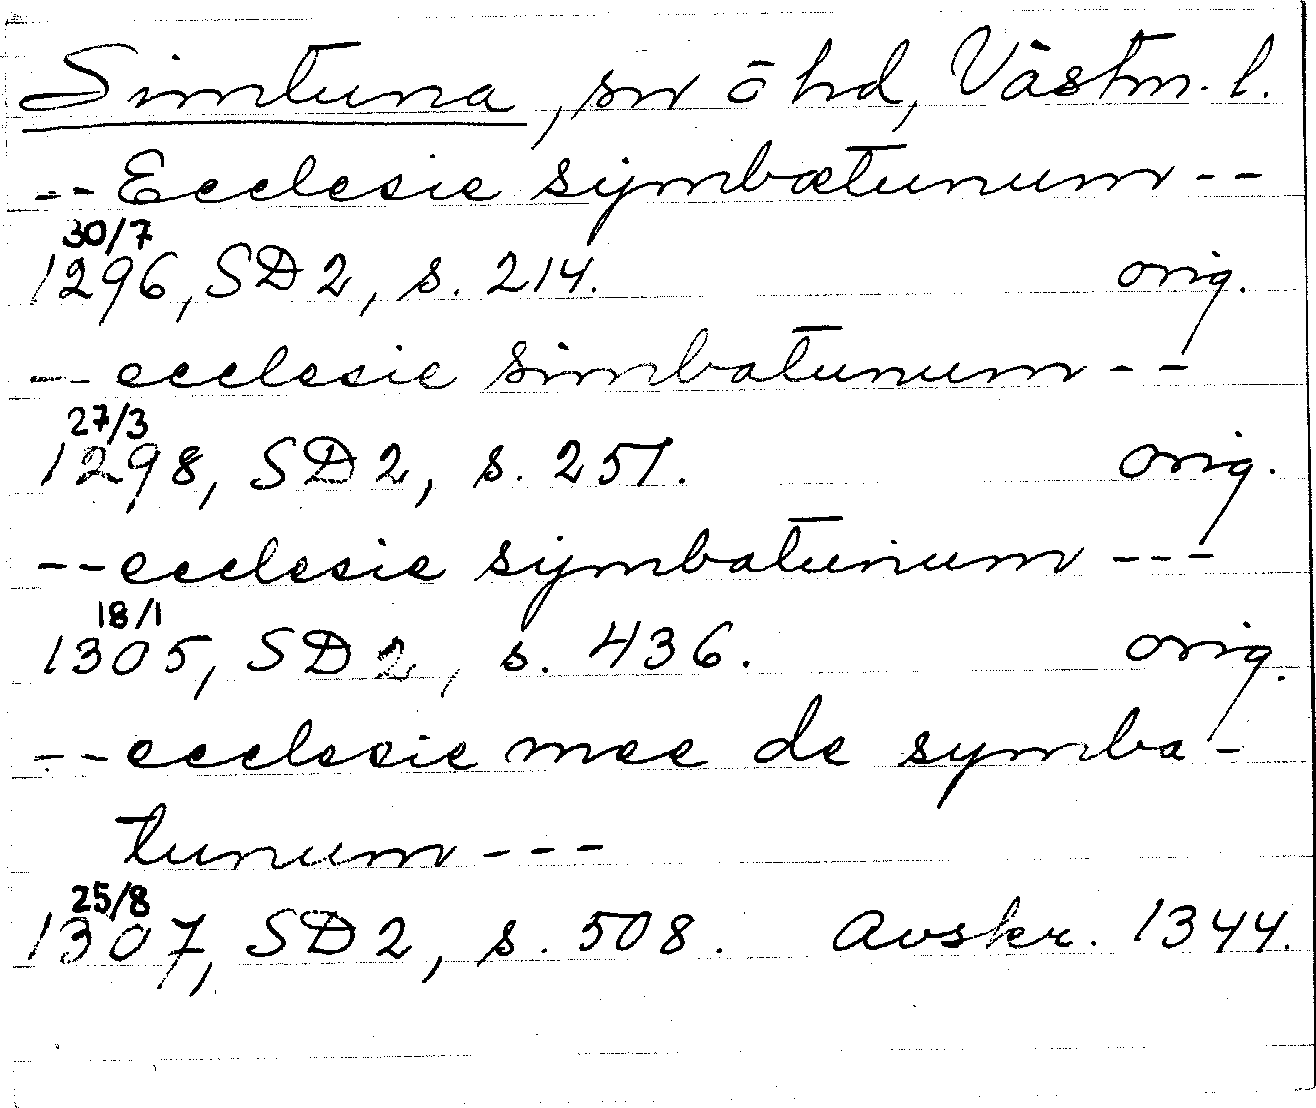 Simtuna, sn o hd, Västm. l.
-- Ecclesie symbætunum --
30/7
1296, SD 2, s. 214. orig.
-- ecclesie simbatunum --
27/3
1298, SD 2, s. 251. orig.
-- ecclesie symbatunum ---
18/1
1305, SD 2, s. 436. orig.
-- ecclesie mee de symba-
tunum ---
25/8
1307, SD 2, s. 508. Avskr. 1344.